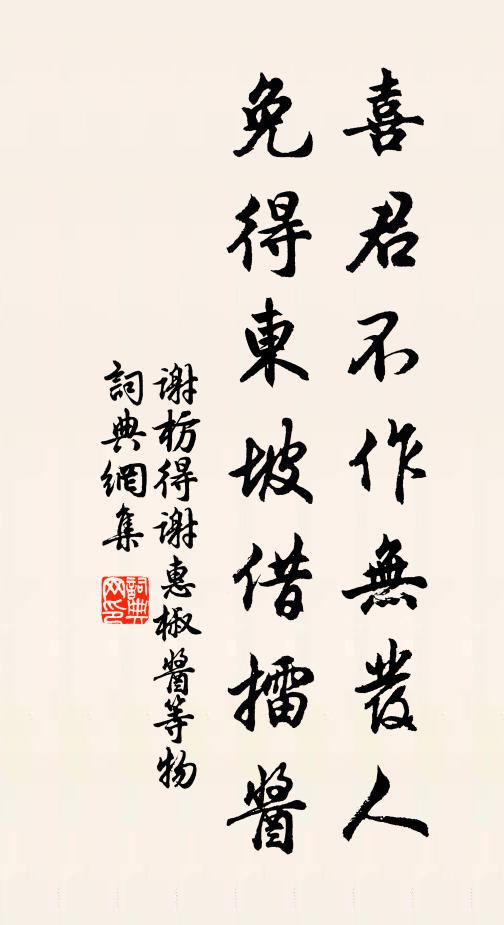 喜君不作無發人
免得東坡借擂醬
謝枋得謝惠椒醬等物
詞典網集
詞典
网印